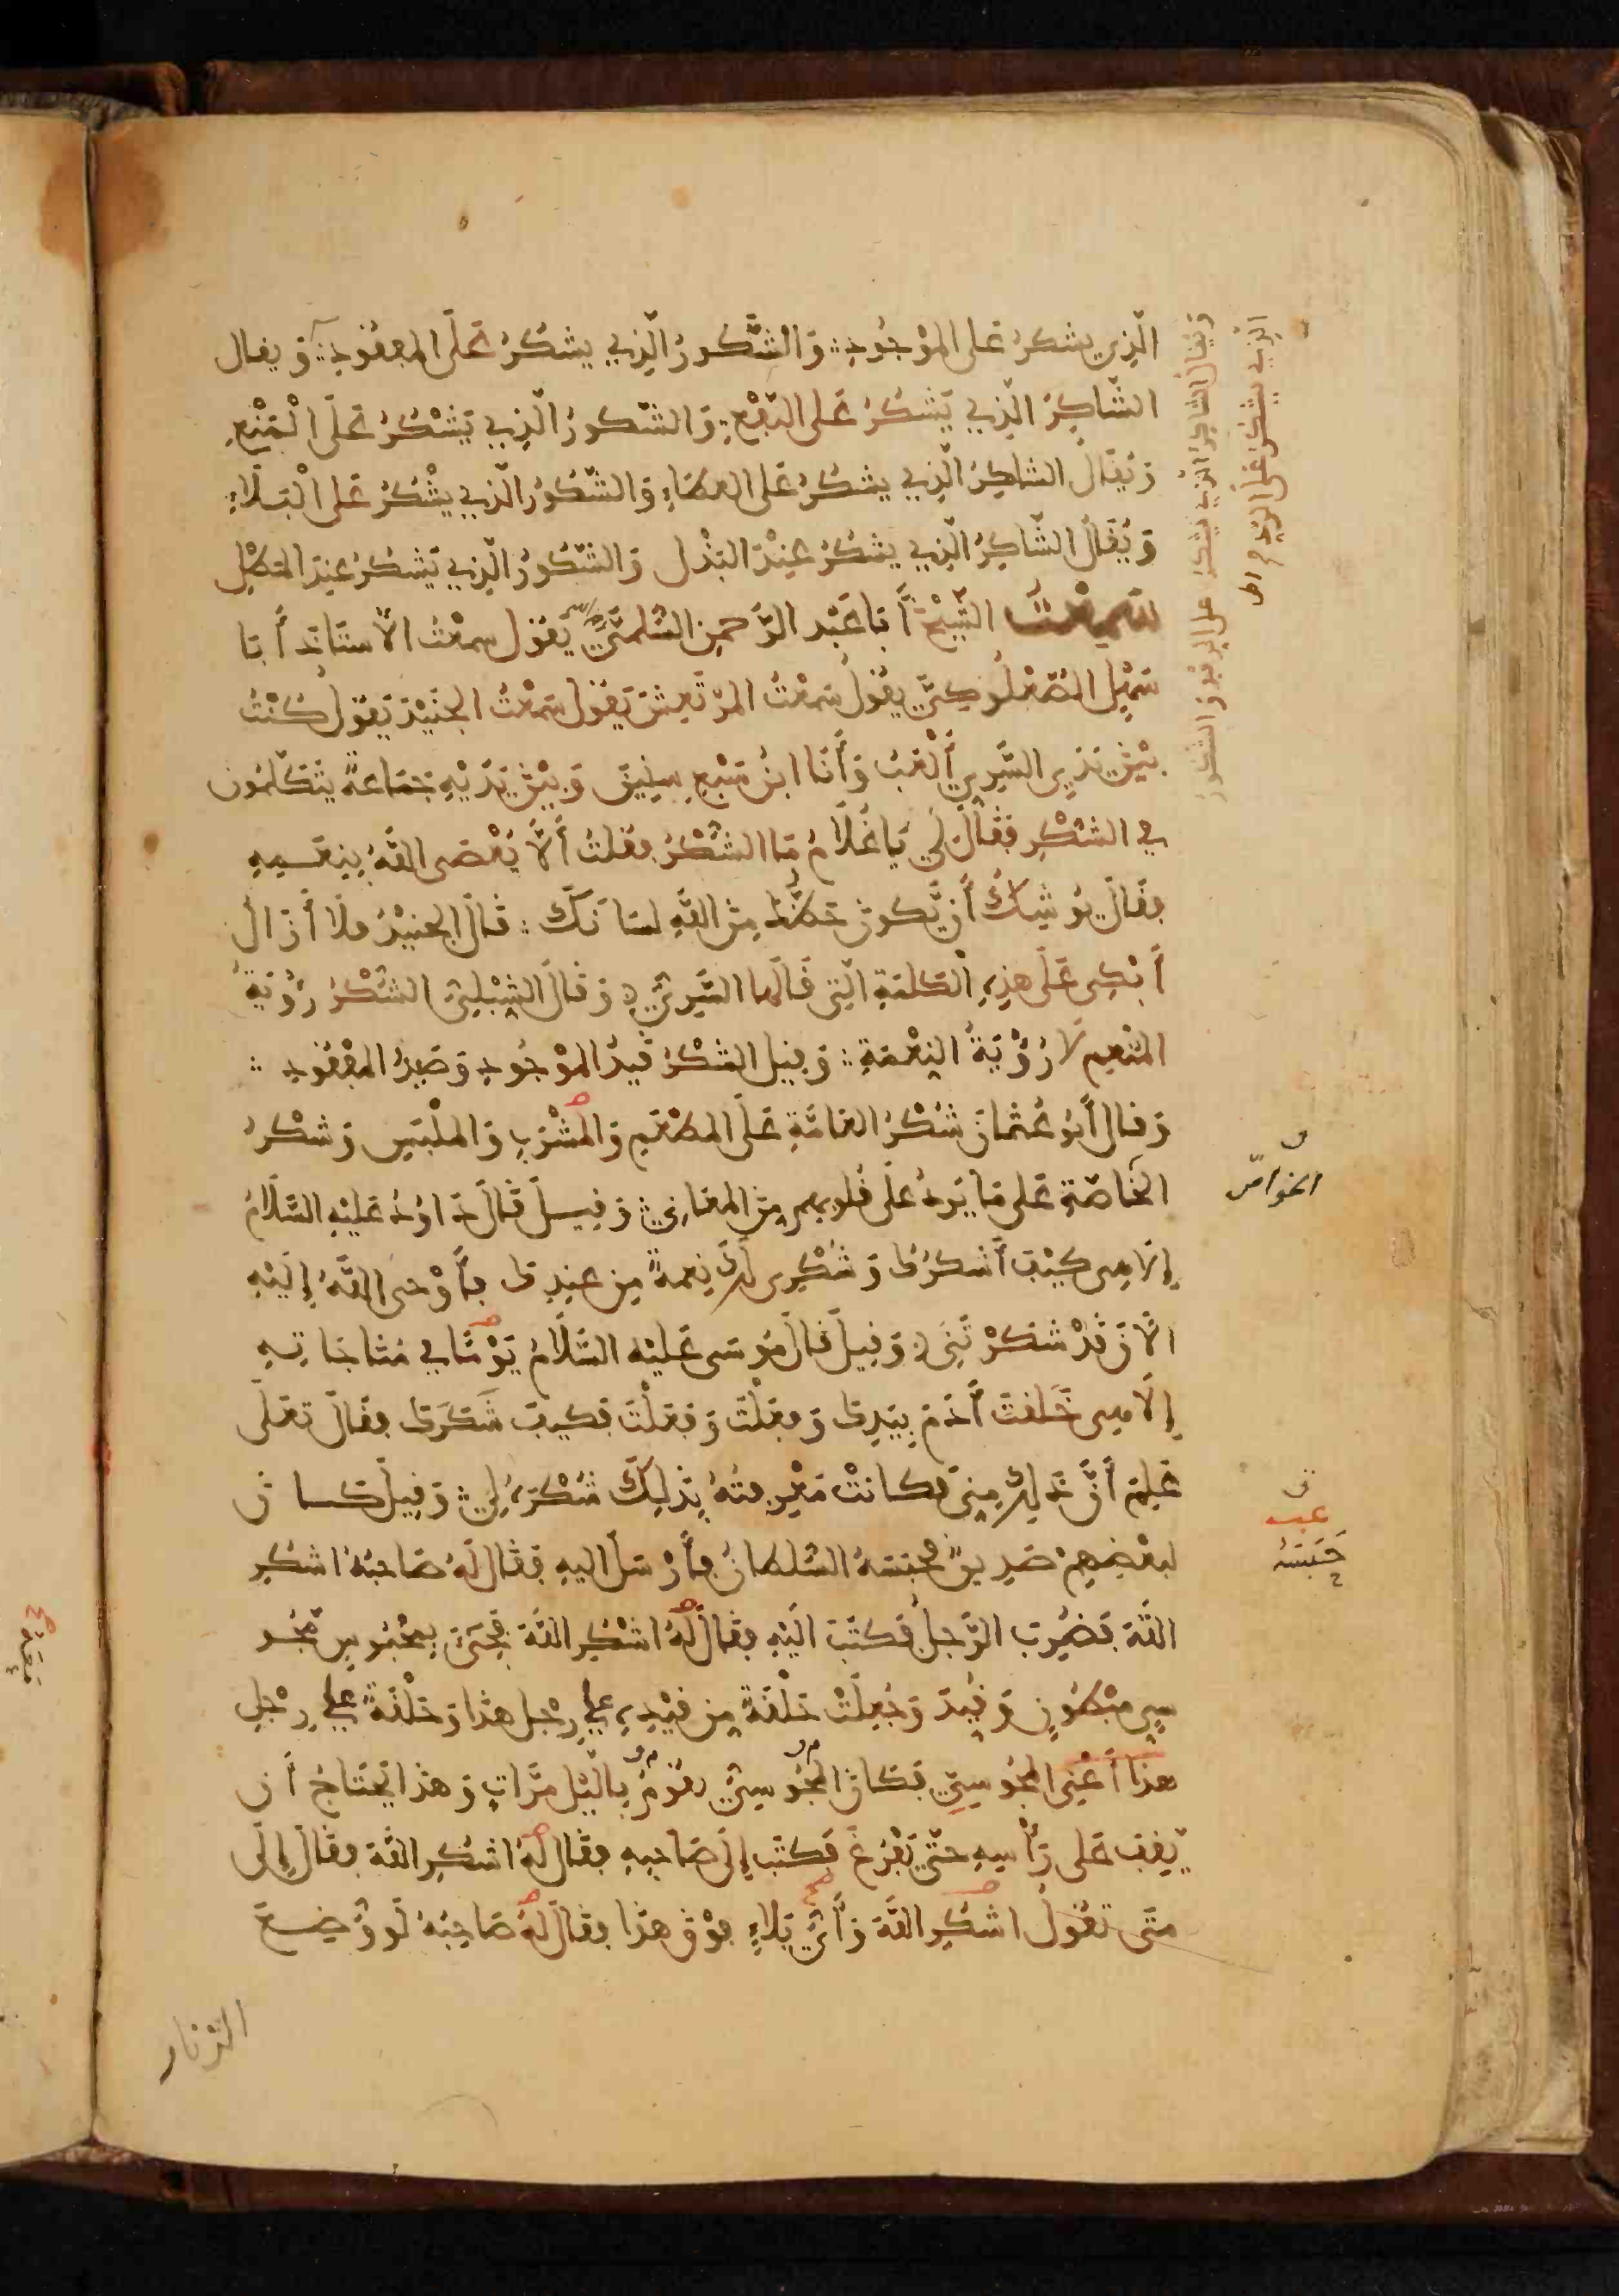 الَّذِي يشكرُ عَلى المَوْجُودِ وَالشَّكورُ الَّذِي يشْكُرُ عَلَى المفقُودِ وَيقال
الشَّاكِرُ الَّذِي يَشكُرُ عَلى النَّفْعِ وَالشَّكورُ الَّذِي يَشْكُرُ عَلَى الْمَنْعِ
وَيُقَالُ الشاكِرُ الَّذِي يشكُرُ عَلى العطَاءِ وَالشَّكُورُ الَّذِي يشْكُرُ عَلى الْبَلَاءِ
وَيُقَالُ الشَّاكِرُ الَّذِي يشكُرُ عِنْدَ البَذْلِ وَالشَّكُورُ الَّذِي يَشْكُرُ عِندَ المَطْلِ
سَمِعْتُ الشَّيْخَ أَبَا عَبْدِ الرَّحمنِ السُّلَمِيَّ يَقول سمعْتُ الأُستَاذَ أَبَا
سَهْلِ الصُّعْلُوكيَّ يقُولُ سَمعْتُ المرْتَعِشَ يَقول سَمعْتُ الجُنَيْدَ يَقولُ كُنْتُ
بيْنَ يَدَيِ السَّرِيِ أَلْعَبُ وَأَنَا ابْنُ سَبْعِ سِنِينَ وَبيْنَ يَدَيْهِ جَمَاعةٌ يتَكَلَّمُونَ
في الشُّكْرِ فَقَالَ لِي يَا غُلَامُ مَا الشُّكْرُ فقلتُ أَلَّا يُعْصَى اللَّهُ بِنِعَمِهِ
فقَالَ يُوشِكُ أَن يَّكونَ حَظُّكَ مِنَ اللَّهِ لسَانَكَ قَالَ الجنيْدُ فلَا أَزَالُ
أَبْكِى عَلَى هَذِهِ الْكَلمَةِ الَّتِي قَالَهَا السَّرِيُّ وَقَالَ الشِّبْلِيُّ الشُّكْرُ رُؤْيَةُ
المنْعِمِ لَا رُؤْيَةُ النِعْمَةِ وَقِيلَ الشُّكْرُ قيدُ الموْجُودِ وَصَيدُ المفْقُودِ
وَقال أَبُو عُثمانَ شُكْرُ العَامَّةِ عَلَى المطْعَمِ وَالمَشْرَبِ وَالملْبَسِ وَشكْرُ
الخَاصَّةِ عَلى مَا يَرِدُ عَلَى قُلُوبِهِم مِّنَ المعَانِي وَقِيلَ قَالَ دَاوُدُ عَلَيْهِ السَّلَامُ
إِلَاهِى كَيْفَ أَشكرُكَ وَشُكْرِى لَكَ نِعمَةٌ مِن عِنْدِكَ فأَوْحَى اللَّهُ إِلَيْهِ
الْأَنَ قَدْ شكَرْتَنِي وَقيلَ قَالَ مُوسَى عَلَيْهِ السَّلَامُ يَوْمًا في مُنَاجَاتِهِ
إِلَاهِى خَلَقْتَ أَدَمَ بِيَدِكَ وَفعَلْتَ وَفعَلْتَ فكَيفَ شَكَرَكَ فقَالَ تعَلَى
عَلِمَ أَنَّ ذَلِكَ مِنِّي فكانَتْ مَعْرِفَتُهُ بِذَلِكَ شُكْرَهُ لِي وَقِيلَ كَانَ
لبعْضِهِمْ صَدِيقٌ فَحَبَسَهُ السُّلطَانُ فأَرْسَلَ اليهِ فَقَالَ لَهُ صَاحِبُهُ اشكُرِ
اللَّهَ فَضُرِبَ الرَّجلُ فَكَتَبَ الَيْهِ فقَالَ لَهُ اشْكُرِ اللَّهَ فَجِيءَ بِمَحْبُوسٍ مجُو
سِىٍ مَبْطُونٍ وَقُيِّدَ وَجُعِلَتْ حَلْقَةٌ مِن قَيْدِهِ علي رِجْلِ هَذَا وَحَلْقَةٌ علي رِجْلِ
هذَا أَعْنِى المجُوسِيَّ فكَانَ المَجُوسِيُّ يقُومُ بِاللَّيْلِ مَرَّاتٍ وَهذَا يَحْتَاجُ أَن
يَقِفَ عَلى رَأْسِهِ حَتَّى يَفْرُغَ فَكَتَبَ إِلَى صَاحِبِهِ فقَالَ لَهُ اشكُرِ اللَّهَ فقَالَ إِلَى
متَى تقُولُ اشكُرِ اللَّهَ وَأَيُّ بَلَاءٍ فَوْقَ هذَا فقَالَ لَهُ صَاحِبُهُ لَوْ وُضِعَ
الزنار
وَيُقال الشاكر الذي يشكر على الرفد والشكور
الذي يشكر على الرد
الخواص
حَبَسَهُ